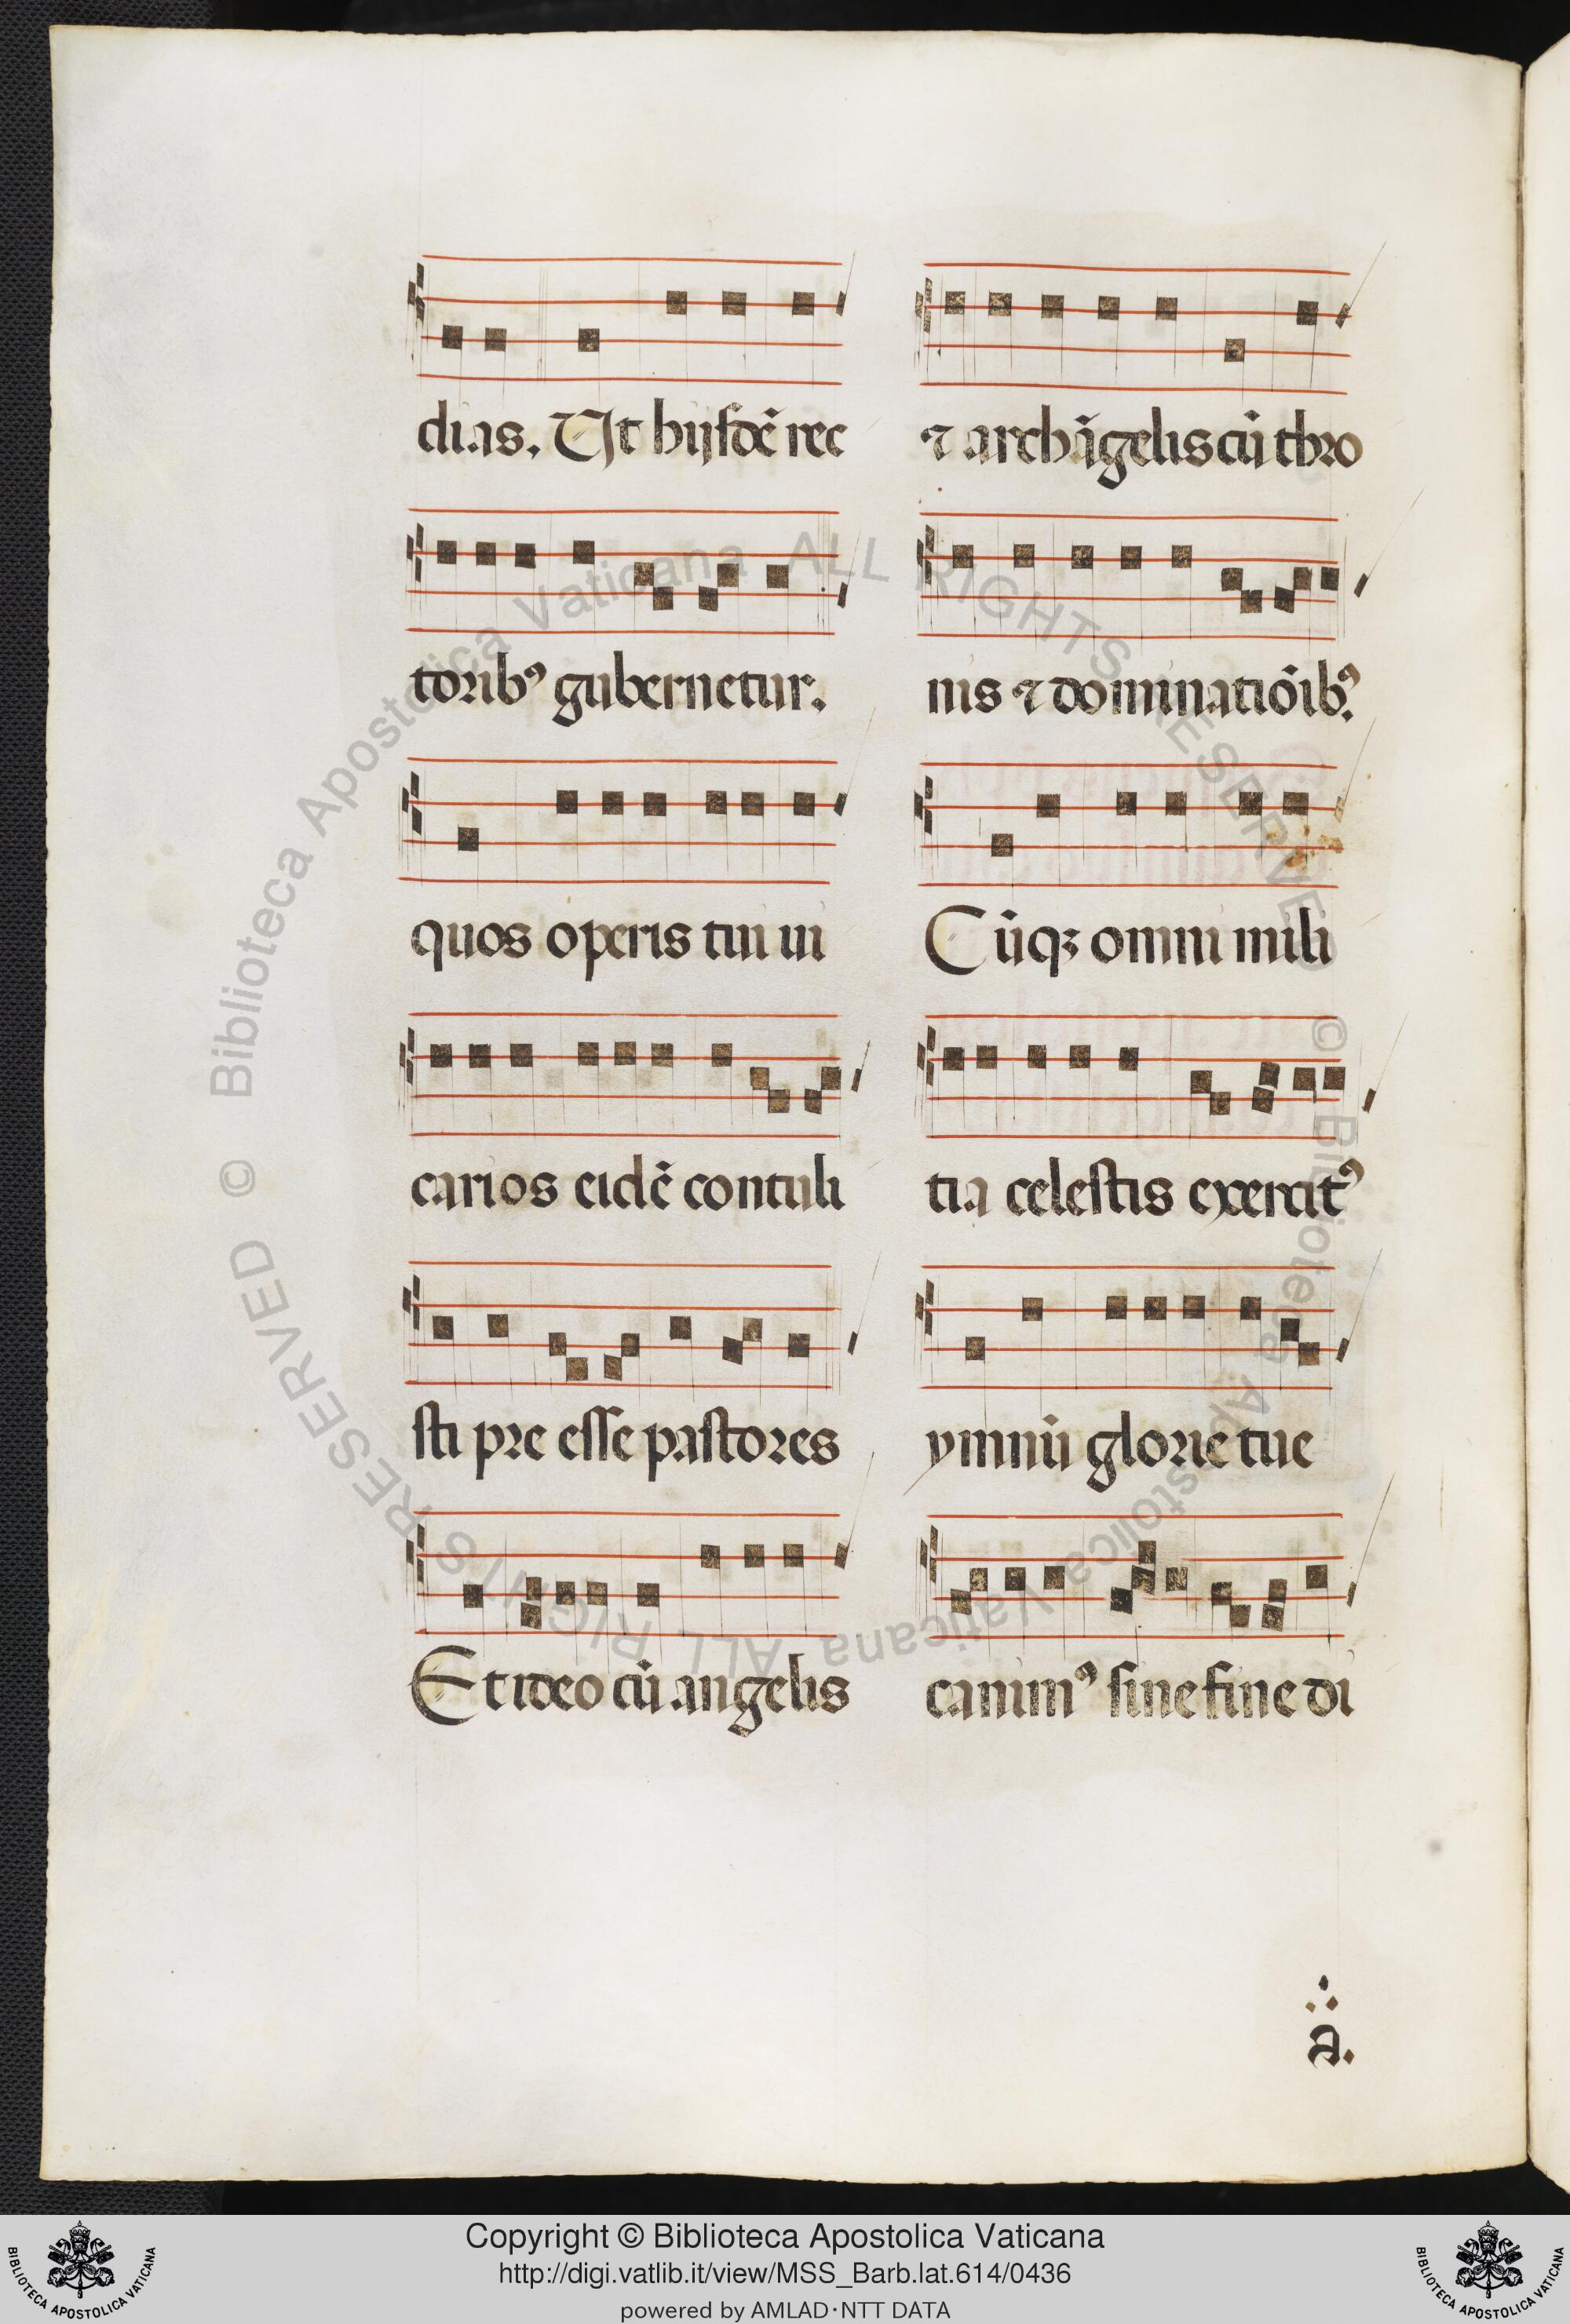 dias. Ut hijsdē rec
toribꝰ gubernetur.
quos operis tui ui
carios eidē contuli
sti pre esse pastores
Et ideo cū angelis
⁊ archāgelis cū thro
nis ⁊ dominatiōibꝰ.
Cūqꝫ omni mili
tia celestis exercitꝰ
ymnū glorie tue
canimꝰ sine fine di
a.
© Biblioteca Apostolica Vaticana ALL RIGHTS RESERVED © Biblioteca Apostolica Vaticana ALL RIGHTS RESERVED
Copyright © Biblioteca Apostolica Vaticana
http://digi.vatlib.it/view/MSS_Barb.lat.614/0436
powered by AMLAD·NTT DATA
BIBLIOTECA APOSTOLICA VATICANA
BIBLIOTECA APOSTOLICA VATICANA